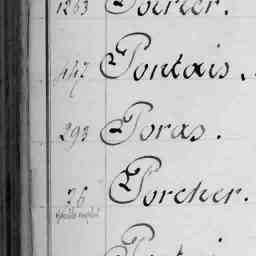 1263 Poirier.
447 Pontais.
293 Poras.
26 Porcher.